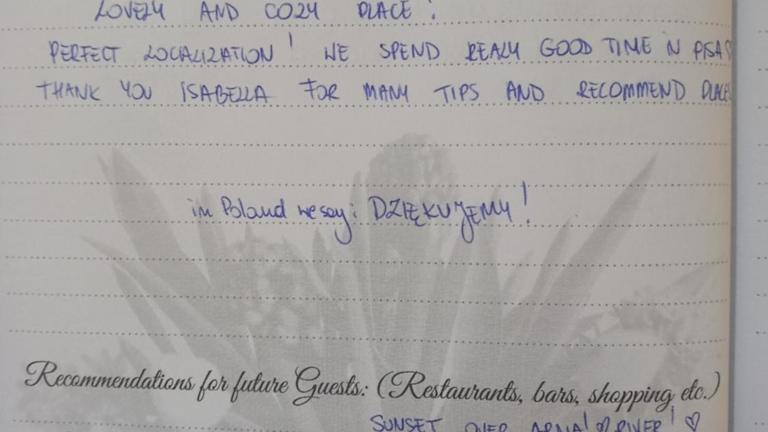 LOVELY AND COZY PLACE!
PERFECT LOCALIZATION! WE SPEND REALY GOOD TIME IN PISA
THANK YOU ISABELLA FOR MANY TIPS AND RECOMMEND
in Poland we say: DZIĘKUJEMY!
Recommendations for future Guests: (Restaurants, bars, shopping etc.)
SUNSET OVER RIVER! ♡